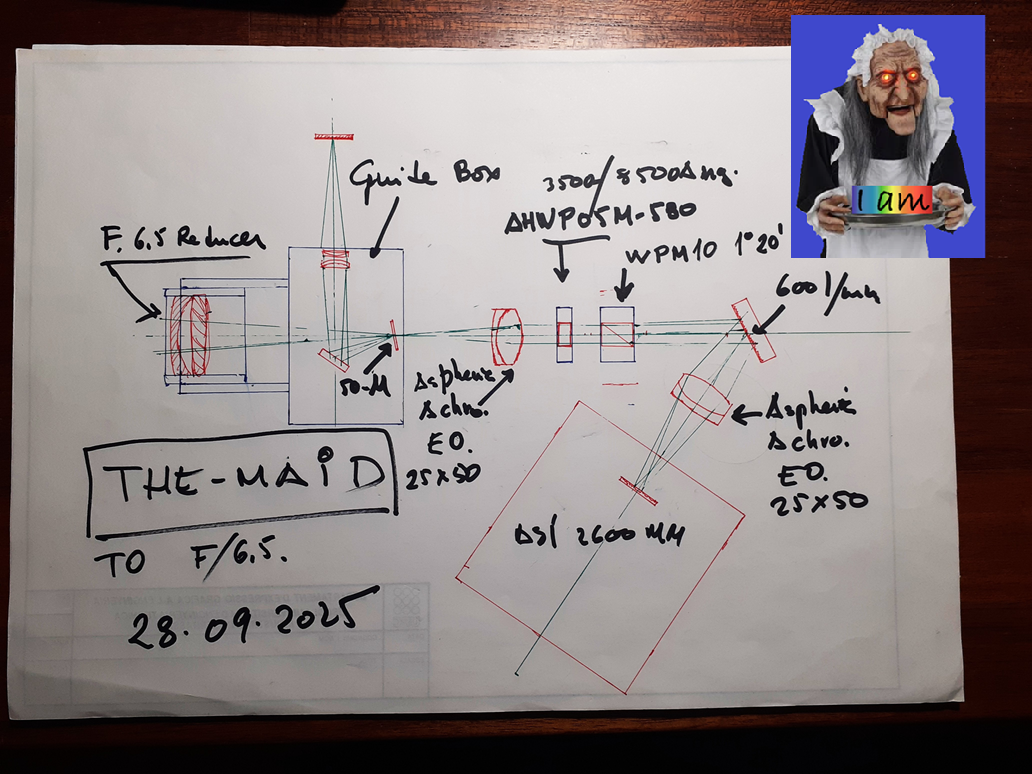 I am
Guide Box
3500/8500Ang.
AHWP05M-580
WPM10 1° 20'
F. 6.5 Reducer
600 l/mm
50-M
Aspheric
Achro.
EO.
25x50
Aspheric
Achro.
EO.
25x50
THE-MAID
TO F/6.5.
28.09.2025
ASI 2600 MM